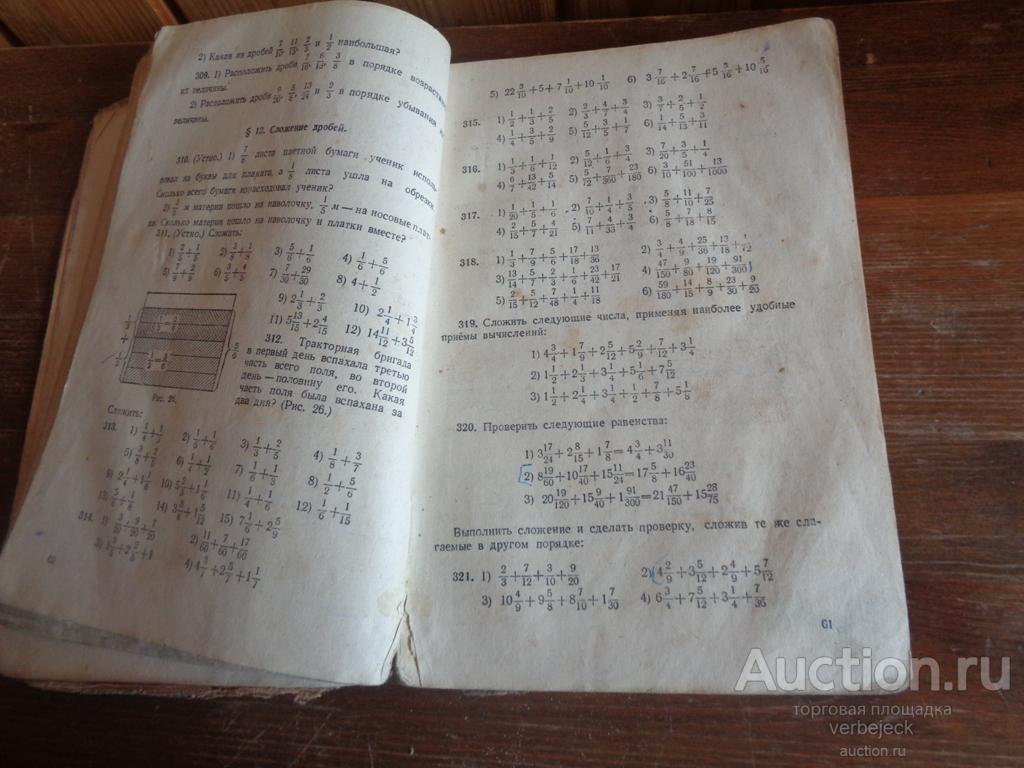 2) Какая из дробей 7/15, 11/15, 2/3 и 1/2 наибольшая?
309. 1) Расположить дроби 7/16, 6/15, 3/8 в порядке возрастания
их величины.
2) Расположить дроби 9/20, 5/6, 13/24 и 2/3 в порядке убывания их
величины.
§ 12. Сложение дробей.
310. (Устно.) 1) листа цветной бумаги ученик исполь-
зовал на буквы для плаката, а 1/8 листа ушла на обрезки.
Сколько всего бумаги израсходовал ученик?
2) м материи пошло на наволочку, 1/5 м — на носовые плат-
ки. Сколько материи пошло на наволочку и платки вместе?
311. (Устно.) Сложить:
3) 5/6+1/6 4) 1/6+5/6
5) 7/9+2/9 7) 7/30+29/30 8) 4+1/2
9) 2 1/3+2/3 10) 2 1/4+1 3/4
11) 5 13/15+2 4/15 12) 14 11/12+3 5/12
312. Тракторная бригада
в первый день вспахала третью
часть всего поля, во второй
день — половину его. Какая
часть поля была вспахана за
два дня? (Рис. 26.)
1/3
1/3=2/6
1/2
1/2=3/6
5/6
Рис. 26.
Сложить:
313. 1) 1/4+1/3 2) 1/3+1/6 3) 1/3+2/5 4) 1/8+3/7
5) 3/8+2/5 6) 1/4+1/2 7) 1/6+1/3 8) 1/2+5/6
9) 2 1/4+1 1/8 10) 5 2/3+1 1/6 11) 1/4+1/6 12) 1/6+1/15
13) 5/6+1/8 14) 3 5/8+1 5/12 15) 7 1/6+2 5/9
314. 1) 3/20+9/20+7/20 2) 11/60+7/60+17/60
4) 4 3/7+2 5/7+1 1/7
60
5) 22 3/10+5+7 1/10+10 1/10 6) 3 7/16+2 7/16+5 5/16+10 5/16
315. 1) 1/2+1/3+2/5 2) 2/3+4/7+3/4 3) 3/7+2/5+1/2
4) 1/4+3/5+2/9 5) 5/12+3/5+1/7 6) 1/14+5/13+3/11
316. 1) 1/3+1/6+1/12 2) 5/12+1/6+3/4 3) 7/20+3/5+1/4
4) 6/7+13/42+5/14 5) 5/72+7/360+23/180 6) 3/10+51/100+13/1000
317. 1) 1/20+1/5+1/6 2) 7/10+1/4+3/5 3) 5/8+11/10+7/25
4) 2/15+5/7+4/21 5) 7/11+4/33+3/4 6) 5/8+7/18+8/15
318. 1) 1/3+7/9+5/6+17/18+13/36 2) 3/4+4/9+25/36+13/18+
3) 13/14+5/7+2/3+1/6+23/42+17/21 4) 47/150+9/80+19/120+91/300
5) 2/5+5/12+7/48+1/4+11/18 6) 59/180+14/15+8/9+23/30+9/20
319. Сложить следующие числа, применяя наиболее удобные
приёмы вычислений:
1) 4 3/4+1 7/9+2 5/12+5 2/9+7/12+3 1/4
2) 1 1/2+2 1/3+3 1/4+5 1/6+7 5/12
3) 1 1/2+2 1/4+3/4+1/2+7/8+5 1/8
320. Проверить следующие равенства:
1) 3 17/24+2 8/15+1 7/8=4 3/4+3 11/30
2) 8 19/60+10 17/40+15 11/24=17 5/8+16 23/40
3) 20 19/120+15 9/40+1 91/300=21 47/150+15 28/75
Выполнить сложение и сделать проверку, сложив те же сла-
гаемые в другом порядке:
321. 1) 2/3+7/12+3/10+9/20 2) 4 2/9+3 5/12+2 4/9+5 7/12
3) 10 4/9+9 5/8+8 7/10+1 7/30 4) 6 3/4+7 5/12+3 1/4+7/36
61
Auction.ru
торговая площадка
verbejeck
auction.ru